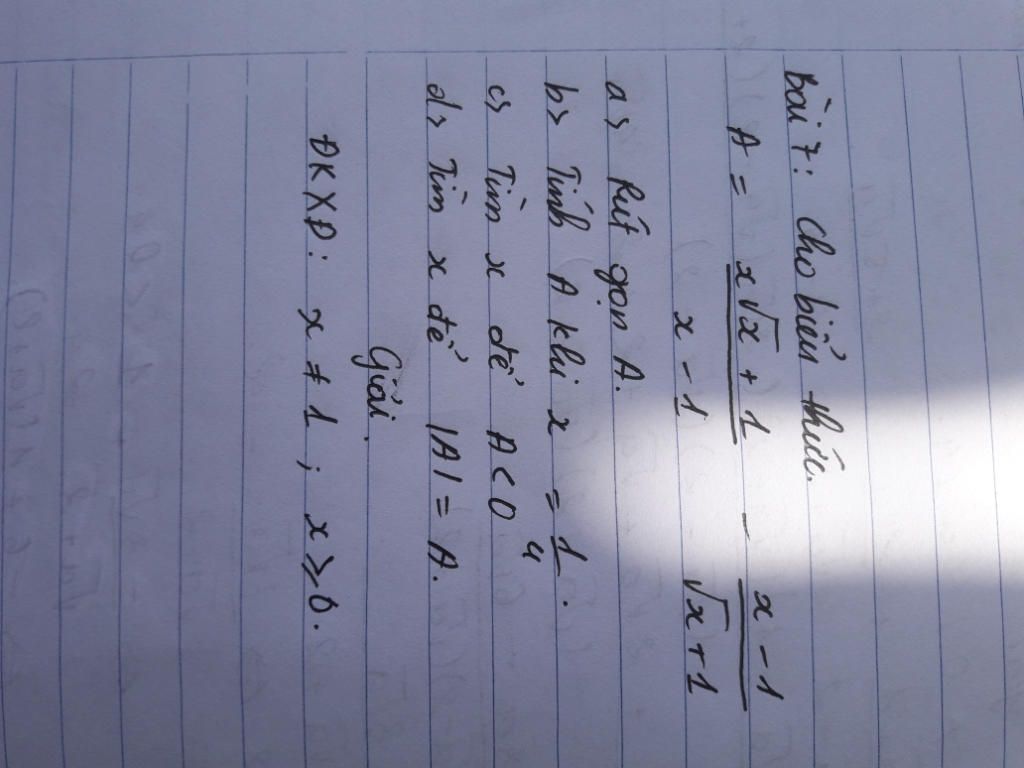 Bài 7: Cho biểu thức.
A = x√x + 1 / x - 1 - x - 1 / √x + 1
a> Rút gọn A.
b> Tính A khi x = 1/4.
c> Tìm x để A < 0
d> Tìm x để |A| = A.
Giải.
ĐKXĐ: x ≠ 1 ; x ≥ 0.